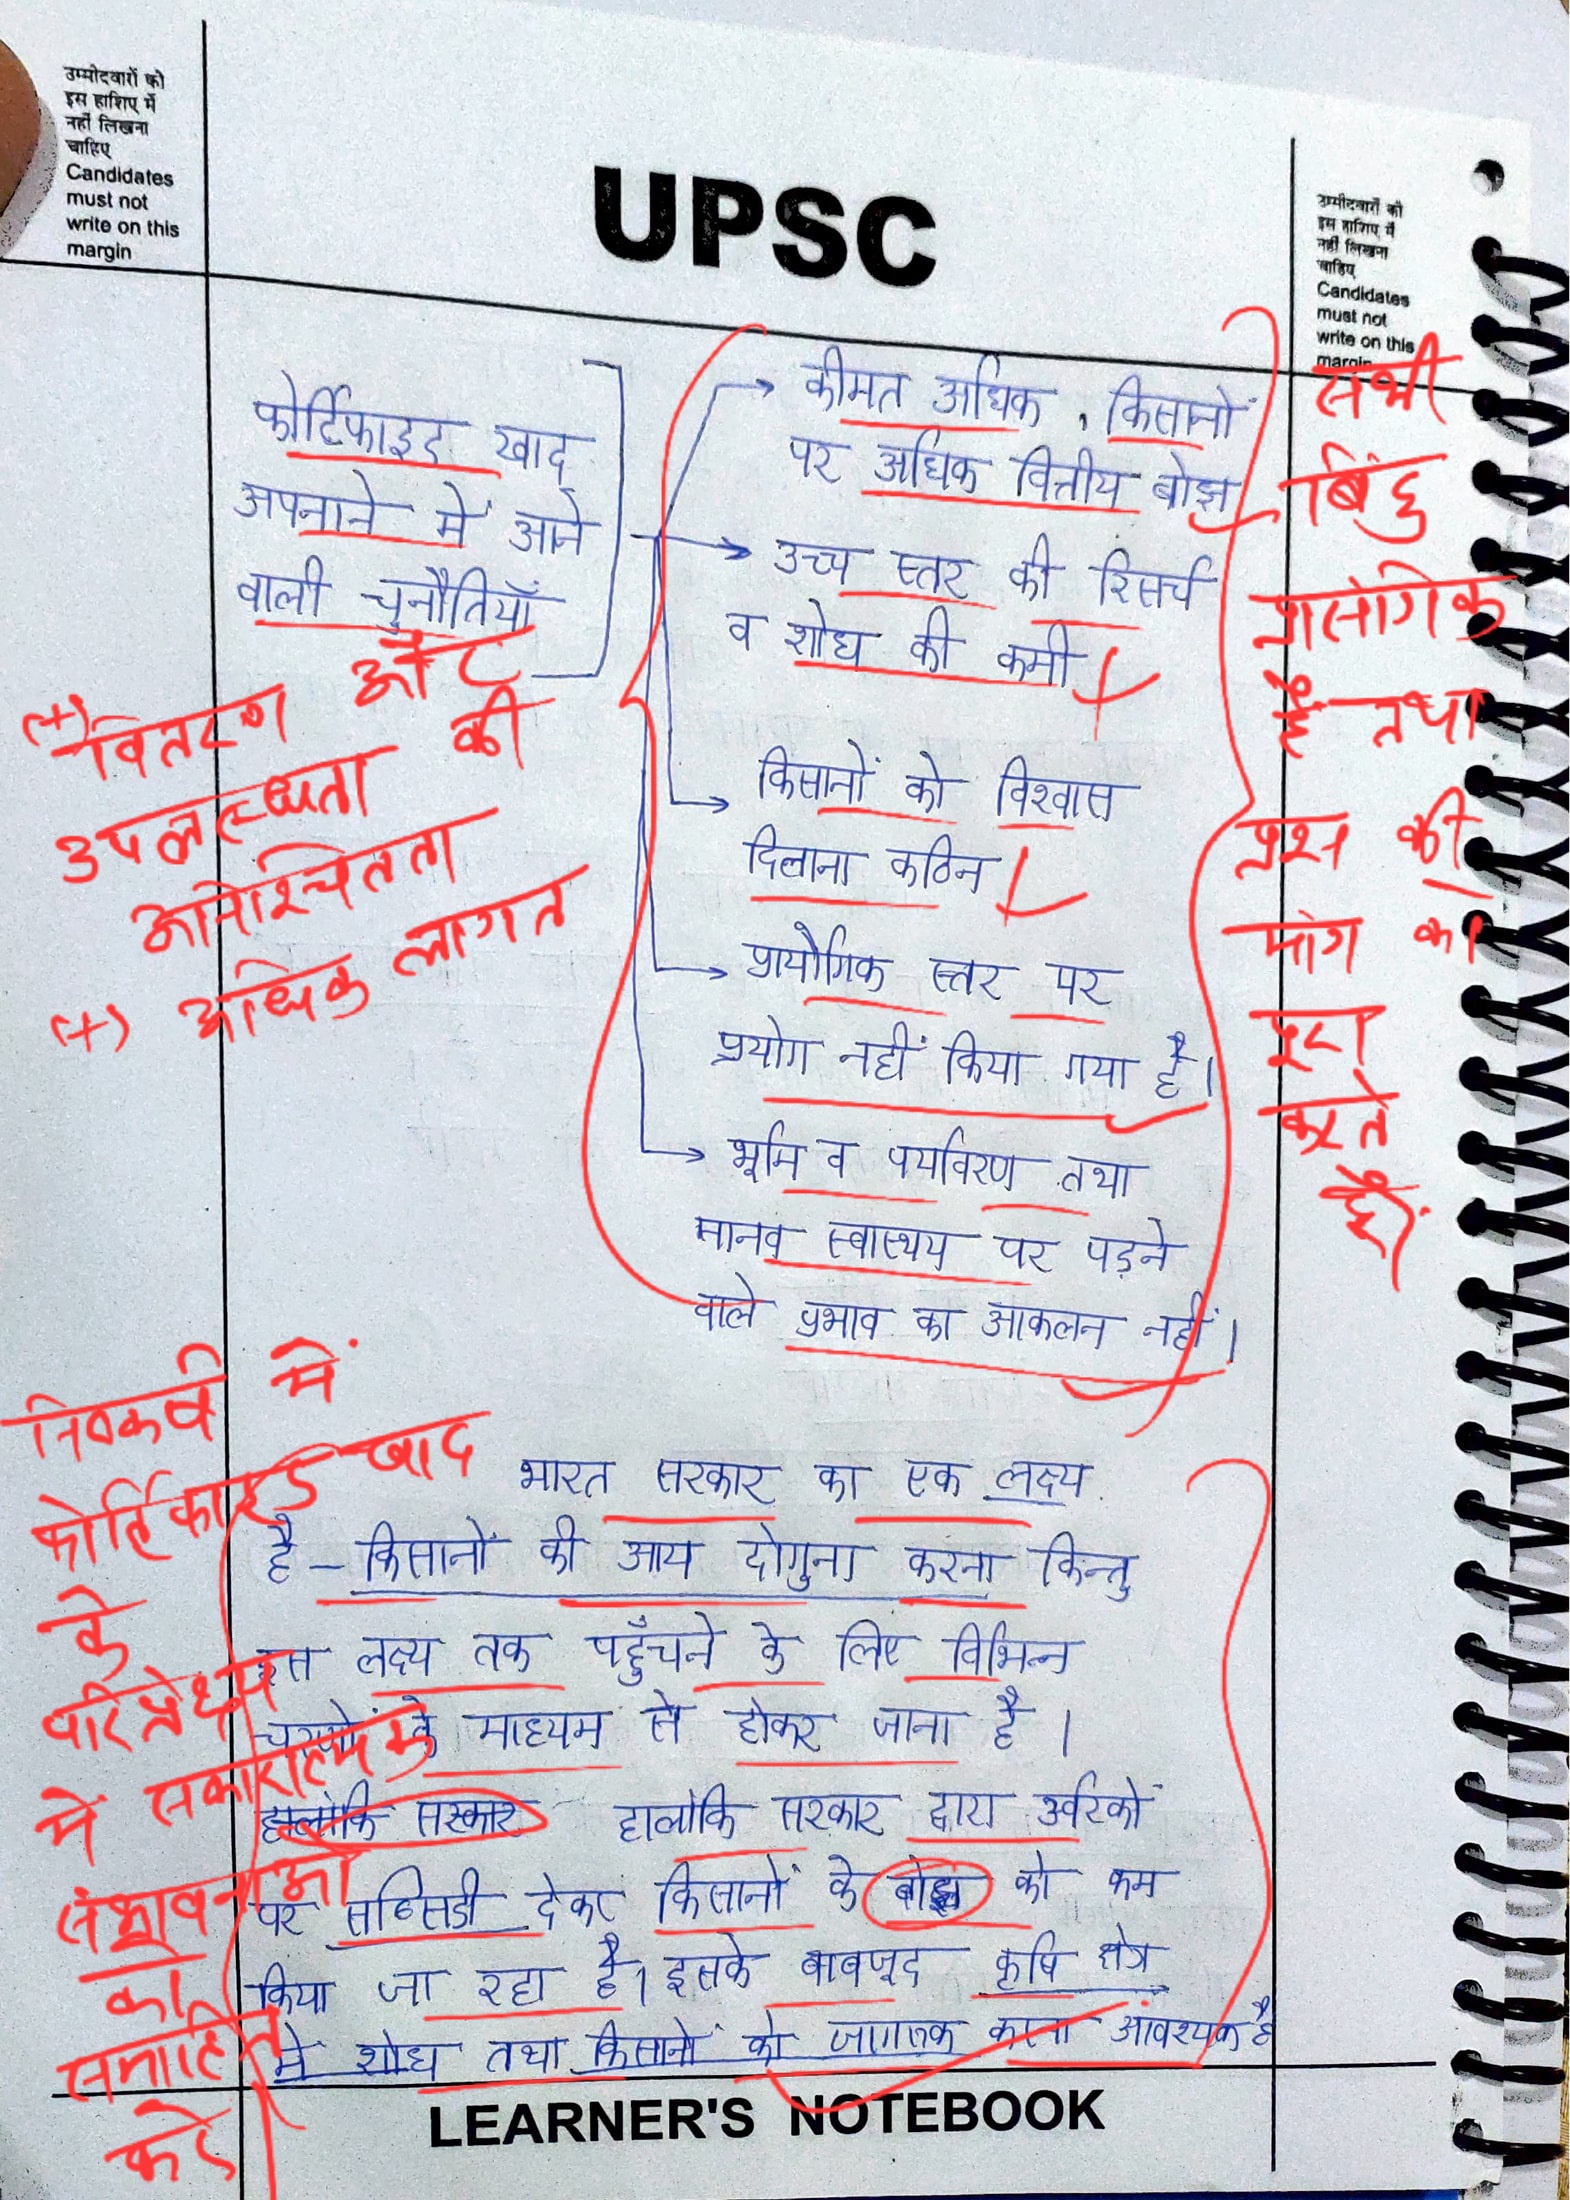 उम्मीदवारों को
इस हाशिए में
नहीं लिखना
चाहिए
Candidates
must not
write on this
margin
UPSC
उम्मीदवारों को
इस हाशिए में
नहीं लिखना
चाहिए
Candidates
must not
write on this
margin
फोर्टिफाइड खाद
अपनाने में आने
वाली चुनौतियाँ
(+) वितरण और
उपलब्धता की
अनिश्चितता
(+) अधिक लागत
→ कीमत अधिक, किसानों
पर अधिक वित्तीय बोझ
→ उच्च स्तर की रिसर्च
व शोध की कमी
→ किसानों को विश्वास
दिलाना कठिन
→ प्रायोगिक स्तर पर
प्रयोग नहीं किया गया है।
→ भूमि व पर्यावरण तथा
मानव स्वास्थय पर पड़ने
वाले प्रभाव का आकलन नहीं।
सभी
बिंदु
प्रासंगिक
है तथा
प्रश्न की
मांग को
पूरा
करते
हैं।
निष्कर्ष में
फोर्टिफाइड खाद
के
परिप्रेक्ष्य
में सकारात्मक
संभावनाओं
को
समाहित
करें।
भारत सरकार का एक लक्ष्य
है – किसानों की आय दोगुना करना किन्तु
इस लक्ष्य तक पहुँचने के लिए विभिन्न
चरणों के माध्यम से होकर जाना है।
हालांकि सरकार हालांकि सरकार द्वारा उर्वरकों
पर सब्सिडी देकर किसानों के बोझ को कम
किया जा रहा है। इसके बावजूद कृषि क्षेत्र
में शोध तथा किसानों को जागरूक करना आवश्यक है
LEARNER'S NOTEBOOK